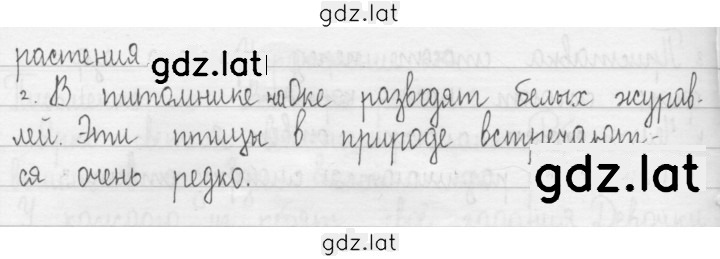 gdz.lat
растения
gdz.lat
2. В питомнике на Оке разводят белых журав-
лей. Эти птицы в природе встречают-
ся очень редко.
gdz.lat
gdz.lat